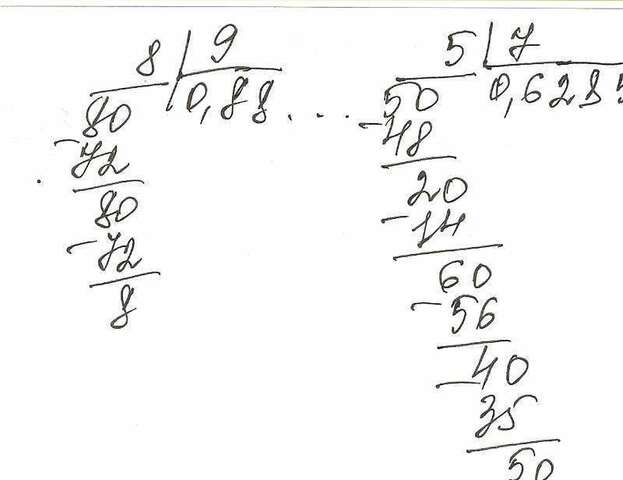 8 | 9
80 | 0,88...
-72
80
-72
8
5 | 7
50 | 0,6285
-48
20
-14
60
-56
-40
35
50